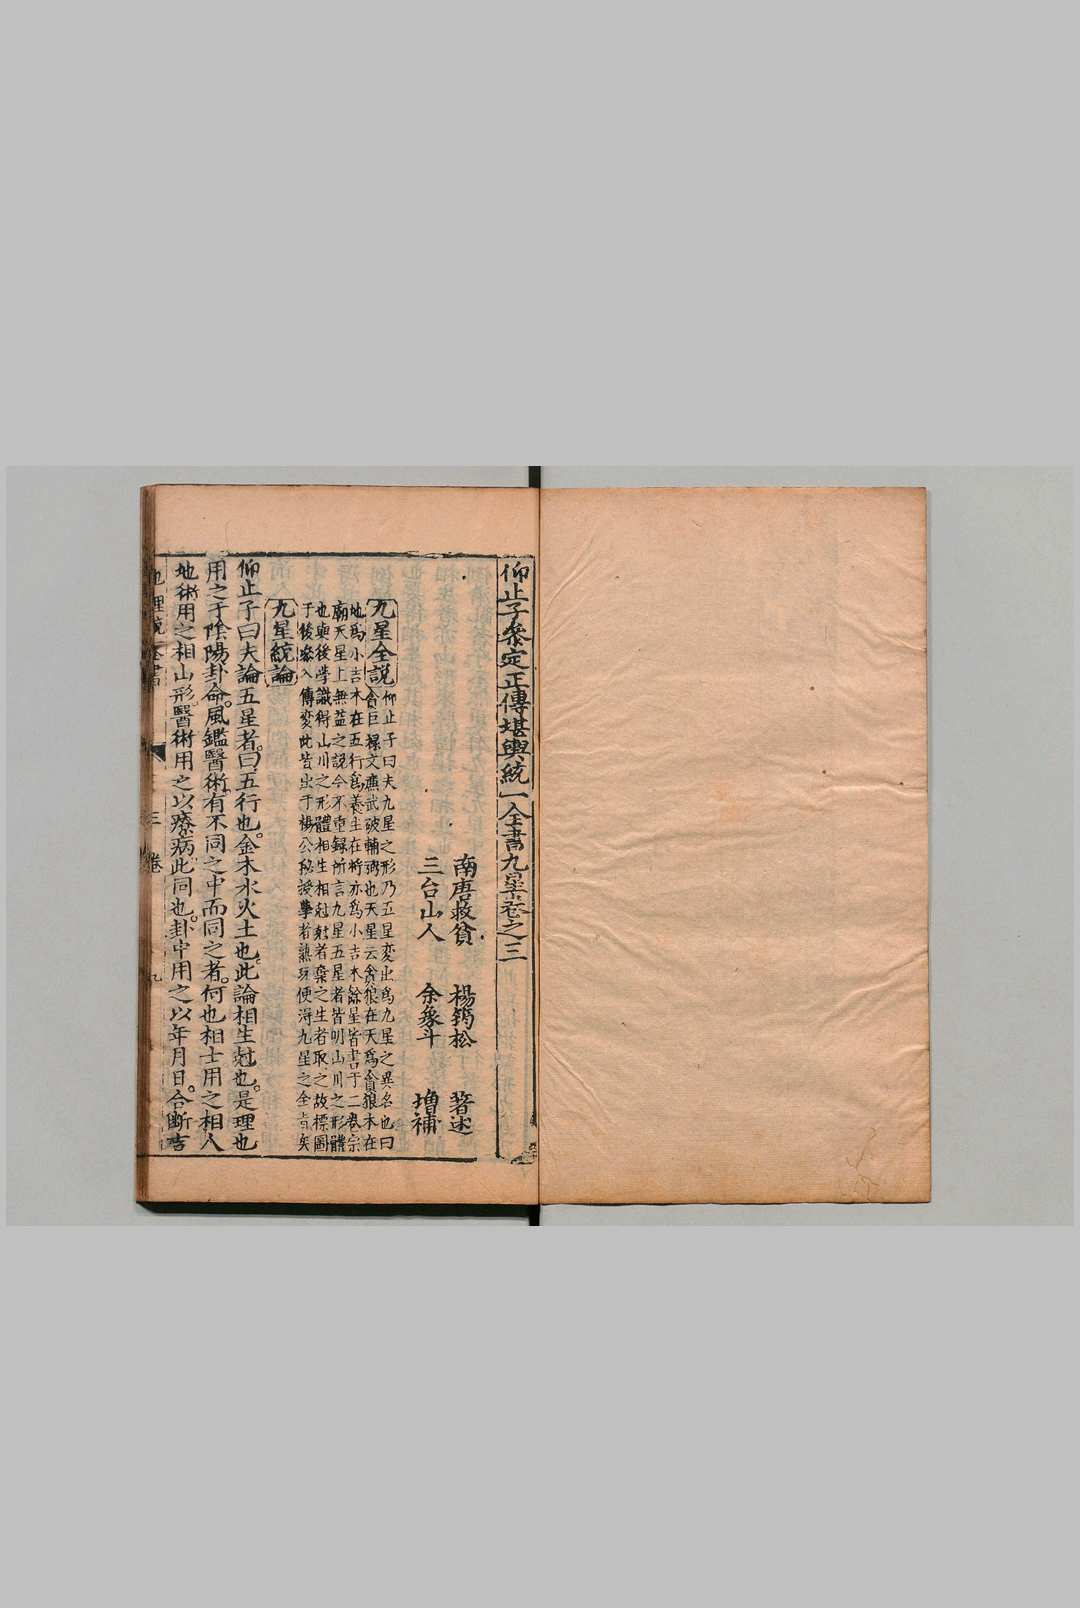 仰止子叅定正傳堪輿統一全書九星卷之三
南唐救貧 楊筠松 著述
三台山人 余象斗 增補
九星全說 仰止子曰夫九星之形乃五星変出爲九星之異名也曰
貪巨祿文廉武破輔弼也天星云貪狼在天爲貪狼木在
地爲小吉木在五行爲養生在將亦爲小吉木餘星皆書于二卷宗
廟天星上無益之說今不重録所言九星五星者皆明山川之形體
也與後學識得山川之形體相生相尅尅者棄之生者取之故標圖
于後叅入傳変此皆出于楊公秘授學者熟玩便得九星之全旨矣
九星統論
仰止子曰夫論五星者曰五行也金木水火土也此論相生尅也是理也
用之于陰陽卦命風鑑醫術有不同之中而同之者何也相士用之相人
地術用之相山形醫術用之以療病此同也卦中用之以年月日合斷吉
地理統一全書 三卷